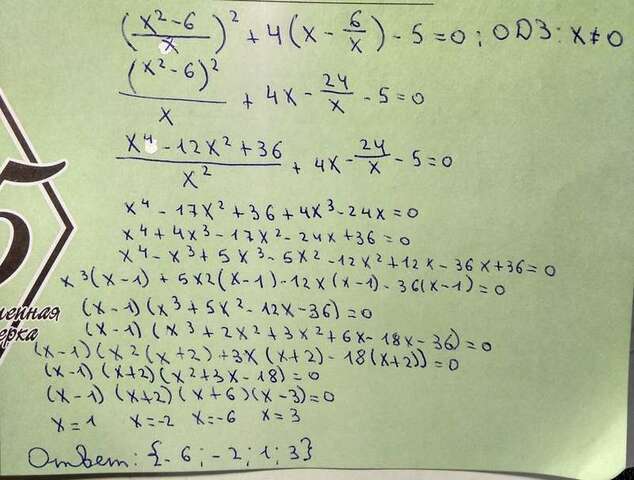 ((x²-6)/x)² + 4(x - 6/x) - 5 = 0 ; ОДЗ: x ≠ 0
(x²-6)²/x + 4x - 24/x - 5 = 0
(x⁴ - 12x² + 36)/x² + 4x - 24/x - 5 = 0
x⁴ - 17x² + 36 + 4x³ - 24x = 0
x⁴ + 4x³ - 17x² - 24x + 36 = 0
x⁴ - x³ + 5x³ - 5x² - 12x² + 12x - 36x + 36 = 0
x³(x-1) + 5x2(x-1) - 12x(x-1) - 36(x-1) = 0
(x-1)(x³ + 5x² - 12x - 36) = 0
(x-1)(x³ + 2x² + 3x² + 6x - 18x - 36) = 0
(x-1)(x²(x+2) + 3x(x+2) - 18(x+2)) = 0
(x-1)(x+2)(x² + 3x - 18) = 0
(x-1)(x+2)(x+6)(x-3) = 0
x = 1 x = -2 x = -6 x = 3
Ответ: {-6; -2; 1; 3}
5
ейная
ерка